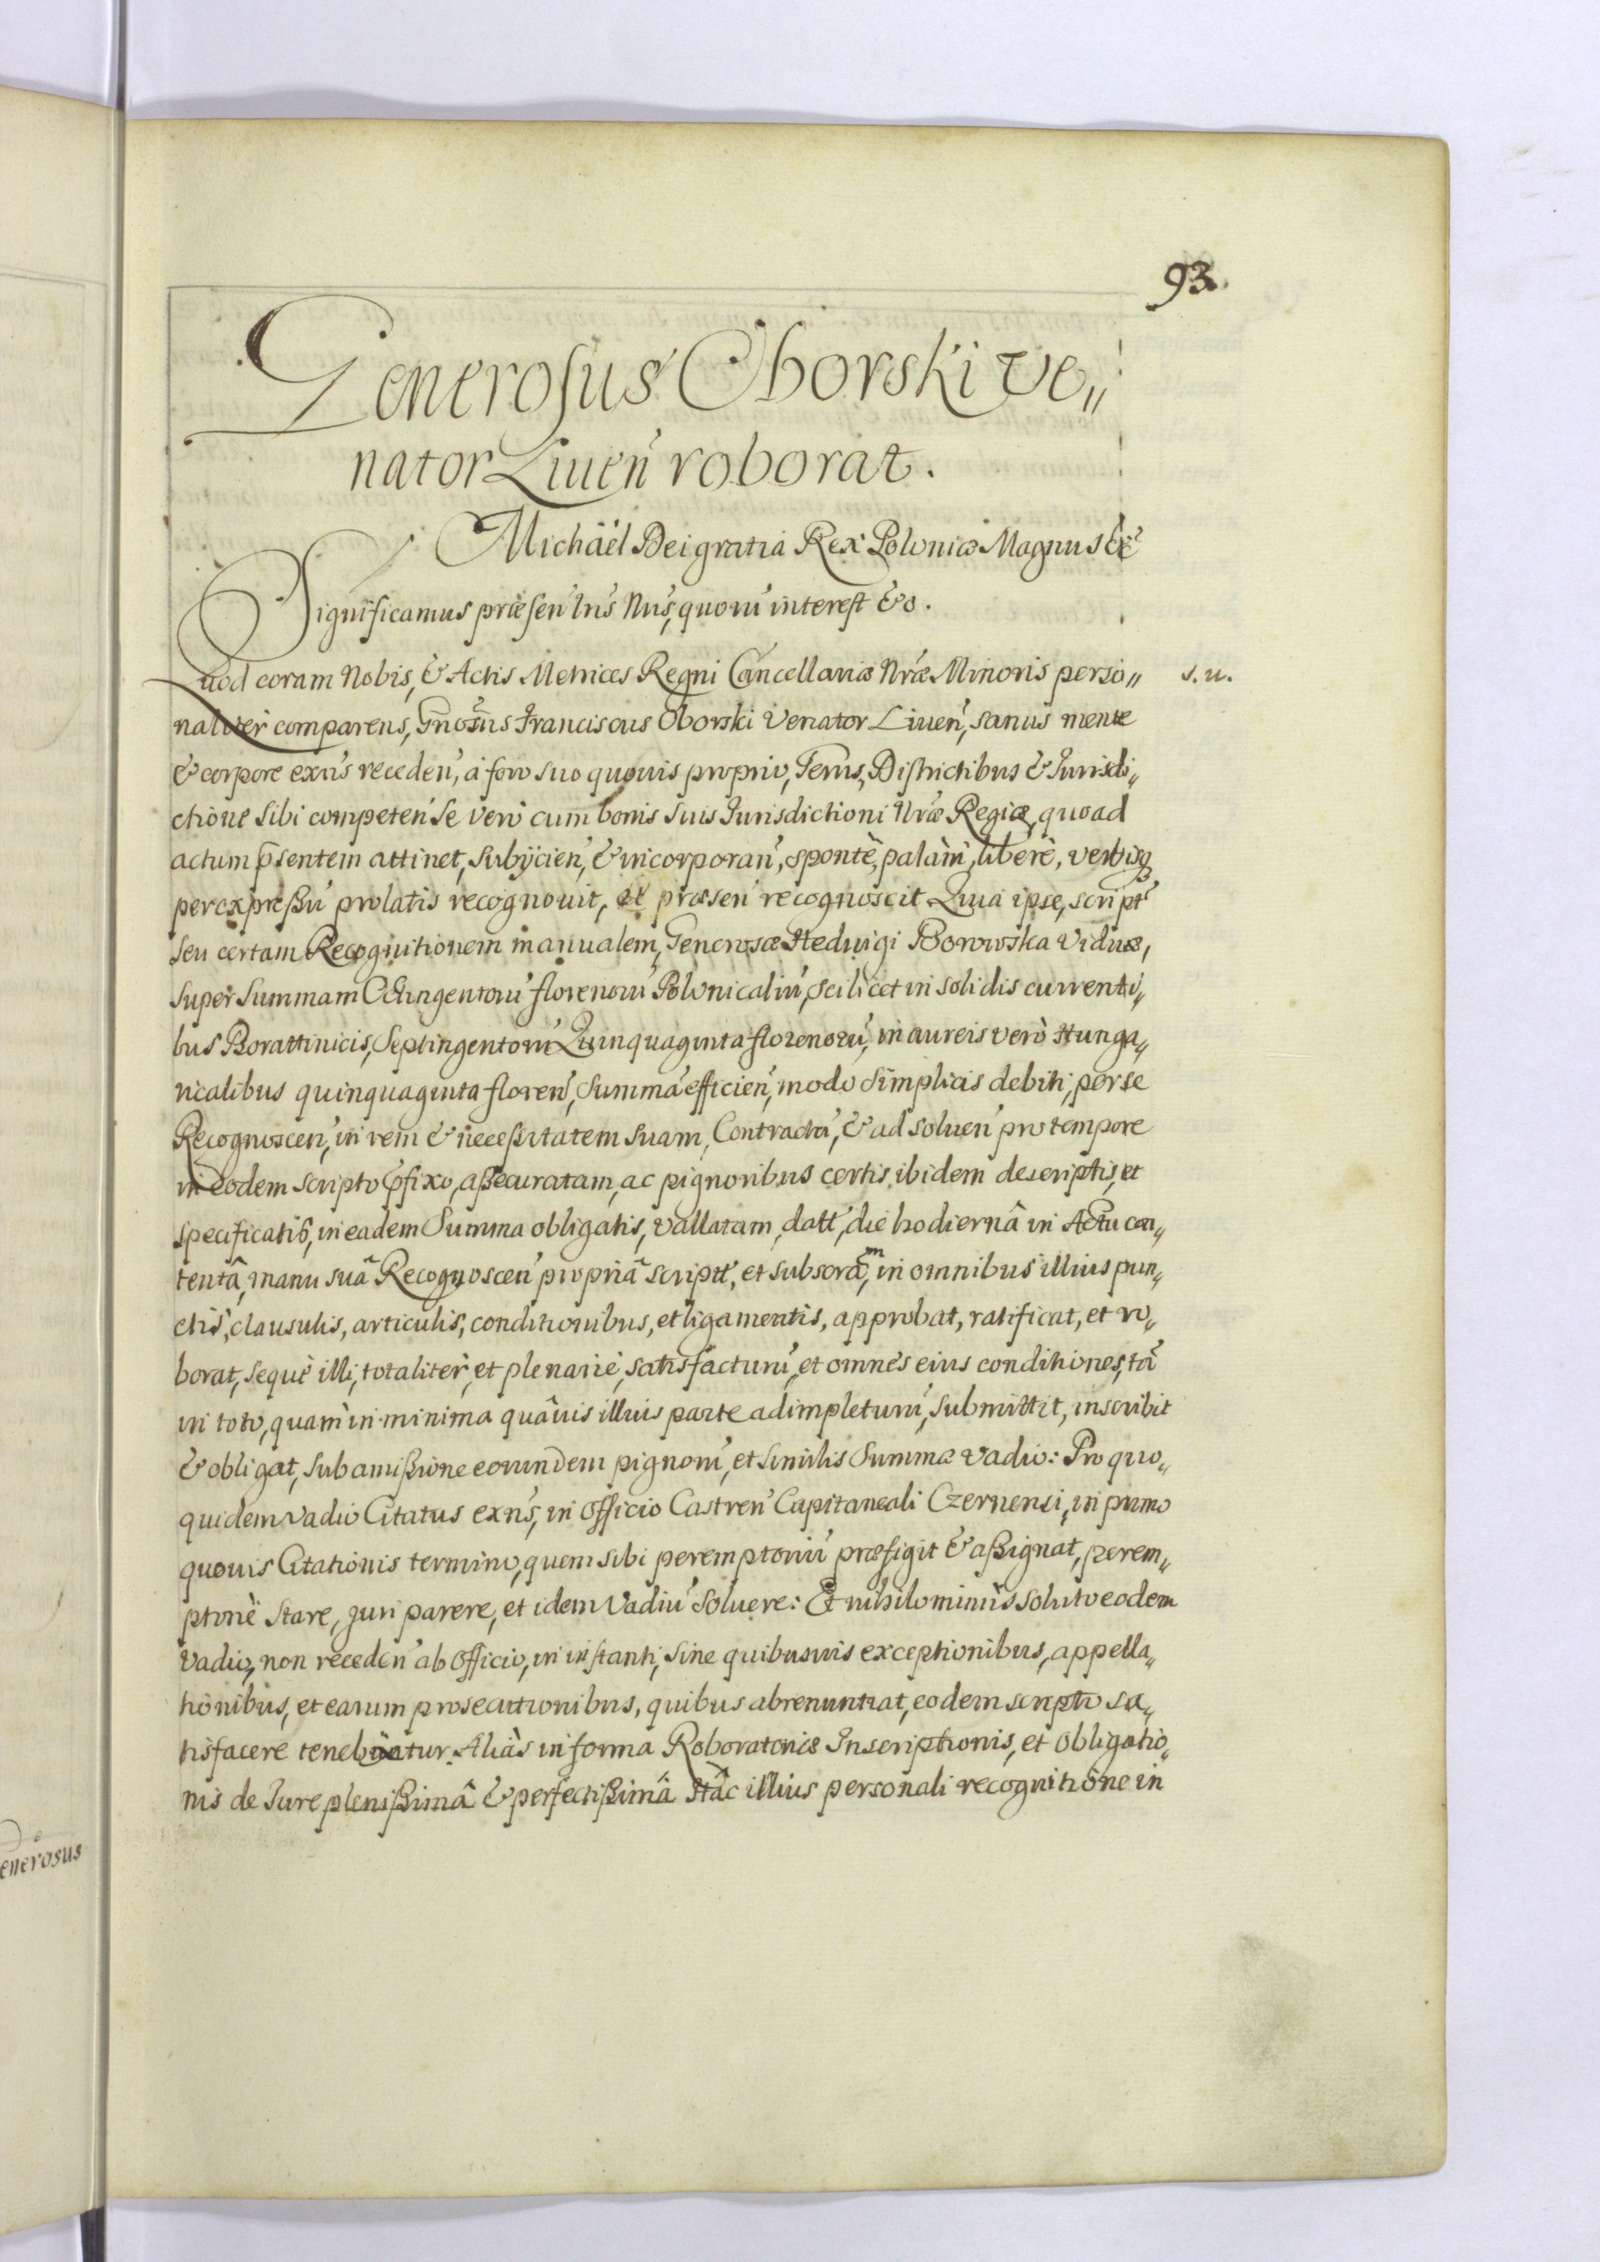 93.
Generosus Oborski ve„
nator Liuen̄ roborat.
Michäel Dei gratia Rex Poloniæ Magnus &c̄
Significamus præsen̄ lrīs Nrīs, quorū interest &c.
Quod coram Nobis, & Actis Metrices Regni Cancellariæ Nrǣ Minoris perso„
s. u.
naliter comparens, Gnosūs Franciscus Oborski Venator Liuen̄, sanus mente
& corpore exn̄s receden̄, à foro suo quouis proprio, Terris, Districtibus & Jurisdi„
ctione sibi competen̄ se verò cum bonis suis Jurisdictioni Nrǣ Regiæ, quoad
actum p̄sentem attinet, subÿcien̄, & incorporan̄, spontè, palàm, liberè, verbisq
per expreßū prolatis recognouit, et præsen̄ recognoscit. Quia ipse, script̄
seu certam Recognitionem manualem, Generosæ Heduigi Borowska Viduæ,
super Summam Octingentorū florenorū Polonicaliū, scilicet in solidis currenti„
bus Borattinicis, Septingentorū Quinquaginta florenorū, in aureis verò Hunga„
ricalibus quinquaginta floren̄, Summā efficien̄, modo simplicis debiti, per se
Recognoscen̄, in rem & neceßitatem suam, Contractā, & ad soluen̄ pro tempore
in eodem scripto p̄fixo, aßecuratam, ac pignoribus certis ibidem descriptis, et
specificatis, in eadem Summa obligatis, vallatam, datt̄, die hodiernâ in Actu con„
tentâ, manu suâ Recognoscen̄ propriâ script̄, et subscrām, in omnibus illius pun„
ctis, clausulis, articulis, conditionibus, et ligamentis, approbat, ratificat, et ro„
borat, sequè illi, totaliter, et plenariè, satisfacturū, et omnes eius conditiones, tā
in toto, quàm in minima quâuis illius parte adimpleturū, submittit, inscribit
& obligat, sub amißione eorundem pignorū, et similis Summæ vadio: Pro quo„
quidem vadio Citatus exn̄s, in Officio Castren̄ Capitaneali Czernensi, in primo
quouis Citationis termino, quem sibi peremptoriū præfigit & aßignat, perem„
ptoriè stare, juri parere, et idem Vadiū soluere: Et nihilominùs soluto eodem
vadio, non receden̄ ab Officio, in instanti, sine quibusuis exceptionibus, appella„
tionibus, et earum prosecutionibus, quibus abrenuntiat, eodem scripto sa„
tisfacere tenebitur. Aliàs in forma Roboratoriæ Inscriptionis, et Obligatio„
nis de Jure plenißimâ & perfectißimâ Hâc illius personali recognitione in
enerosus